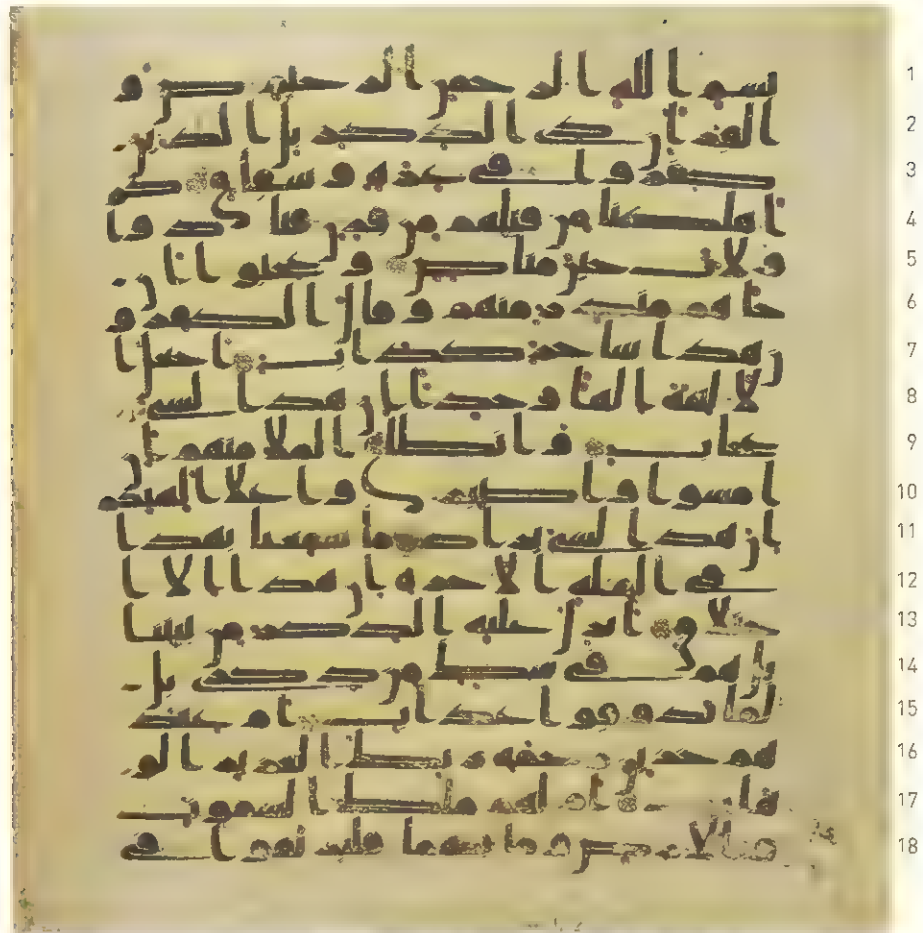 1 بسم الله الرحمن الرحيم ص و
2 القران ذي الذكر بل الذين
3 كفروا في عزة وشقاق كم
4 اهلكنا من قبلهم من قرن فنادوا
5 ولات حين مناص وعجبوا ان
6 جاهم منذر منهم وقال الكفرو
7 ن هذا ساحر كذاب اجعل ا
8 لالهة الها وحدا ان هذا لشي
9 عجاب وانطلق الملا منهم ا
10 ن امشوا واصبروا على الهتكم
11 ان هذا لشي يراد ما سمعنا بهذا
12 في الملة الاخرة ان هذا الا ا
13 ختلق انزل عليه الذكر من بيننا
14 بل هم في شك من ذكري بل
15 لما يذوقوا عذاب ام عند
16 هم خزاين رحمة ربك العزيز الو
17 هاب ام لهم ملك السموت
18 والارض وما بينهما فليرتقوا في